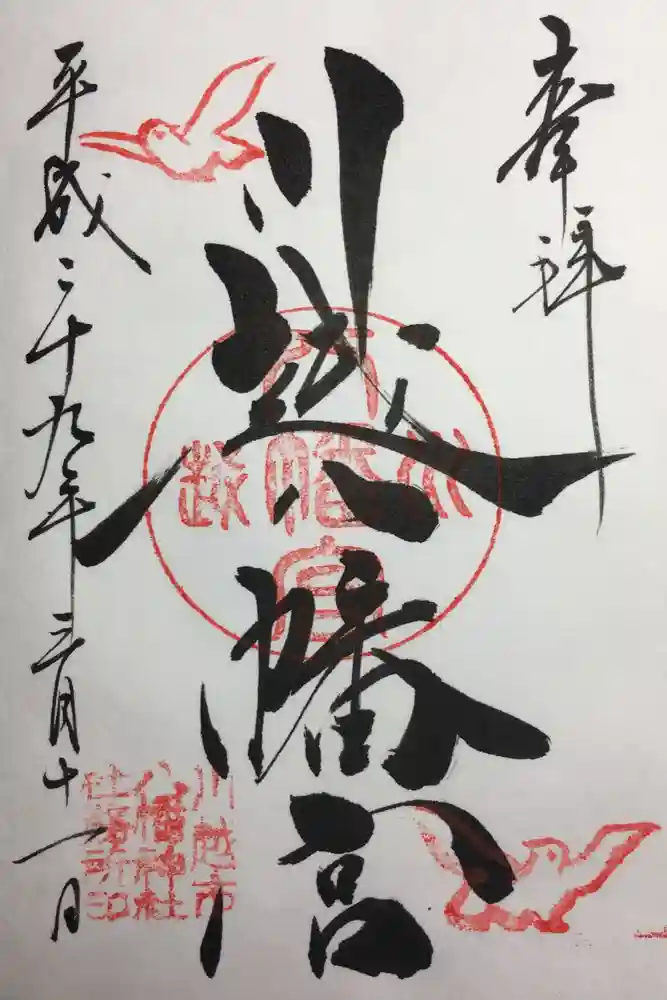 奉拝
川越八幡宮
平成二十九年三月十一日
川越
八幡宮
川越市
八幡神社
社務所印